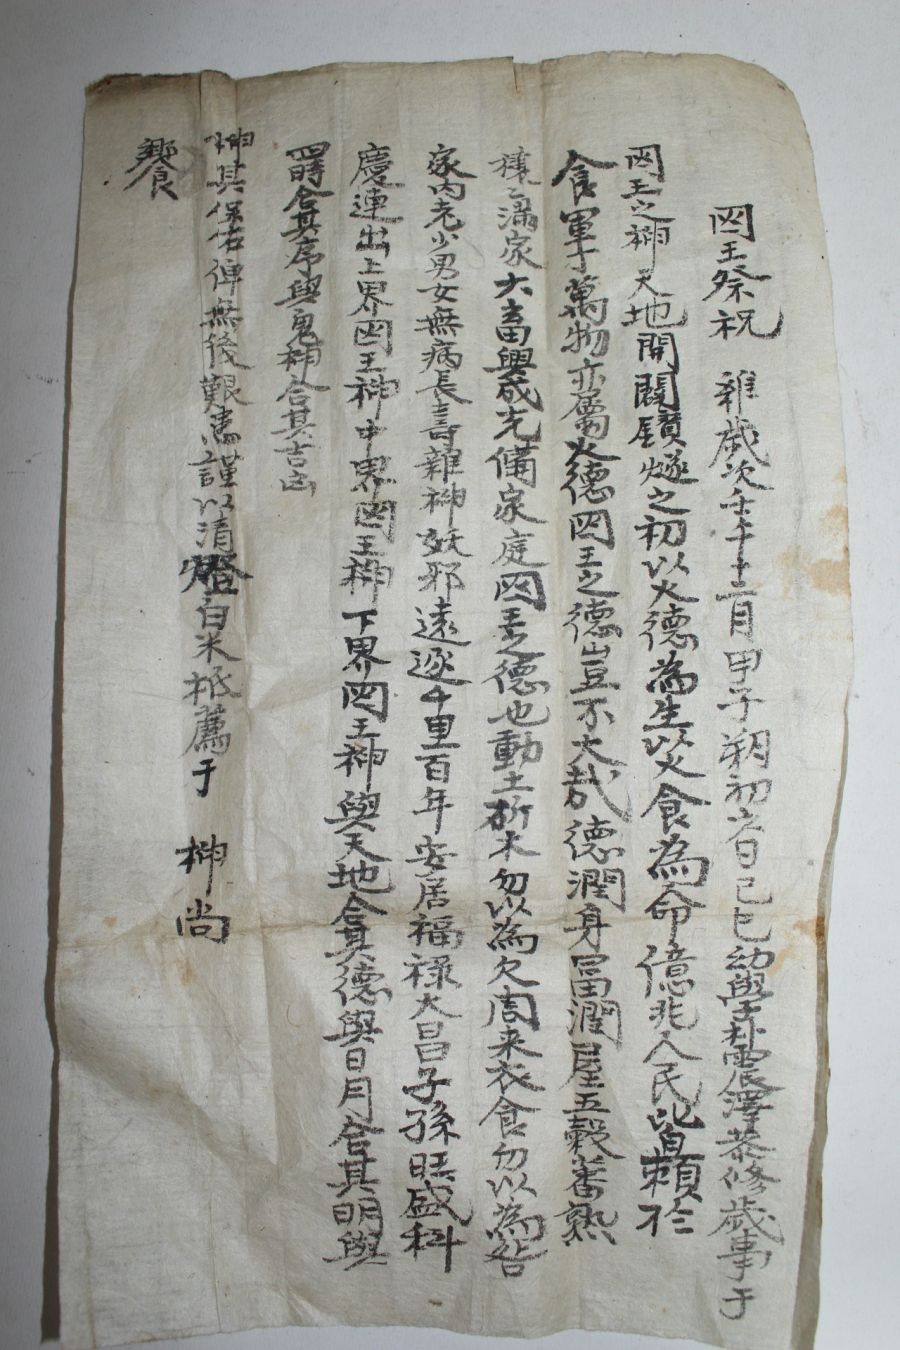 囜王祭祝 維歲次壬午十二月甲子朔初六日己巳幼學朴震澤恭修歲事于
囜王之神天地開闢鑽燧之初以火德為生以火食為命億兆人民皆賴於
食軍于萬物亦屬火德囜王之德豈不大哉德潤身冨潤屋五穀蕃熟
穰〻滿家六畜興成先備家庭囜王之德也動土斫木勿以為欠周来衣食勿以為咎
家内老少男女無病長壽雜神妖邪遠逐千里百年安居福祿大昌子孫旺盛科
慶連出上界囜王神中界囜王神下界囜王神與天地合其德與日月合其明與
四時合其序與鬼神合其吉凶
神其保佑俾無後艱患謹以清燈白米祗薦于 神尚
饗